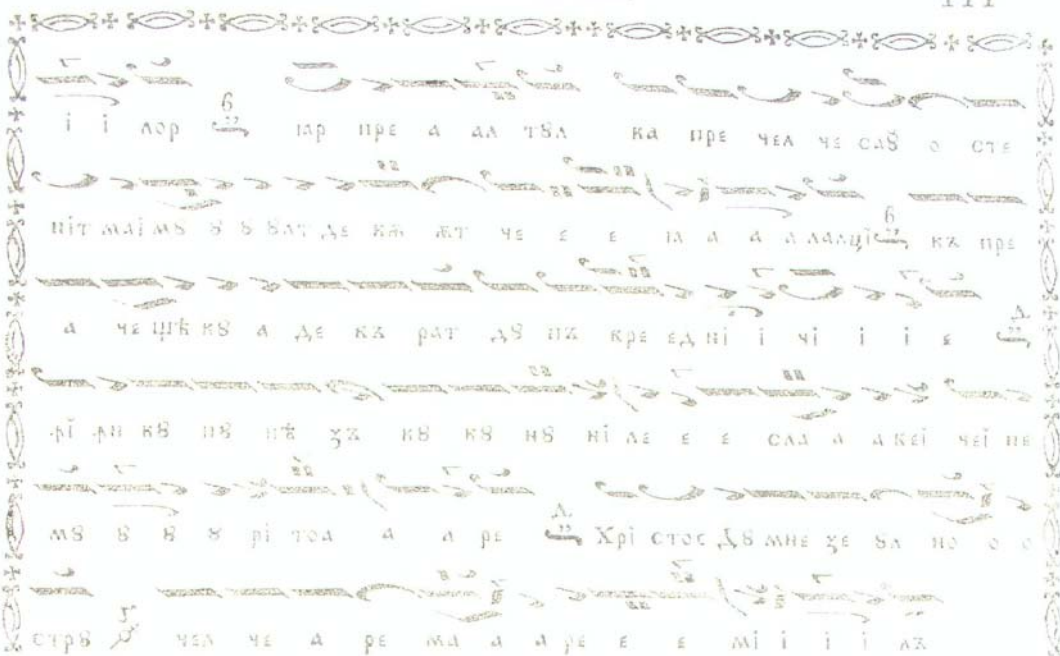 111
і і лор іар пре а ал тꙋл ка пре чел че саꙋ о сте
ніт маі мꙋ ꙋ ꙋ ꙋлт де кѫ ѫт че е е іа а а а лалці къ пре
а че щѣ кꙋ а де въ рат дꙋ пъ кре ед ні і чі і і е
фі фи кꙋ пꙋ нѣ зъ кꙋ кꙋ нꙋ ні ле е е сла а а веі чеі не
мꙋ ꙋ ꙋ ꙋ рі тоа а а ре Хрі стос Дꙋ мне зе ꙋл но о о
стрꙋ чел че а ре ма а а ре е е мі і і і лъ